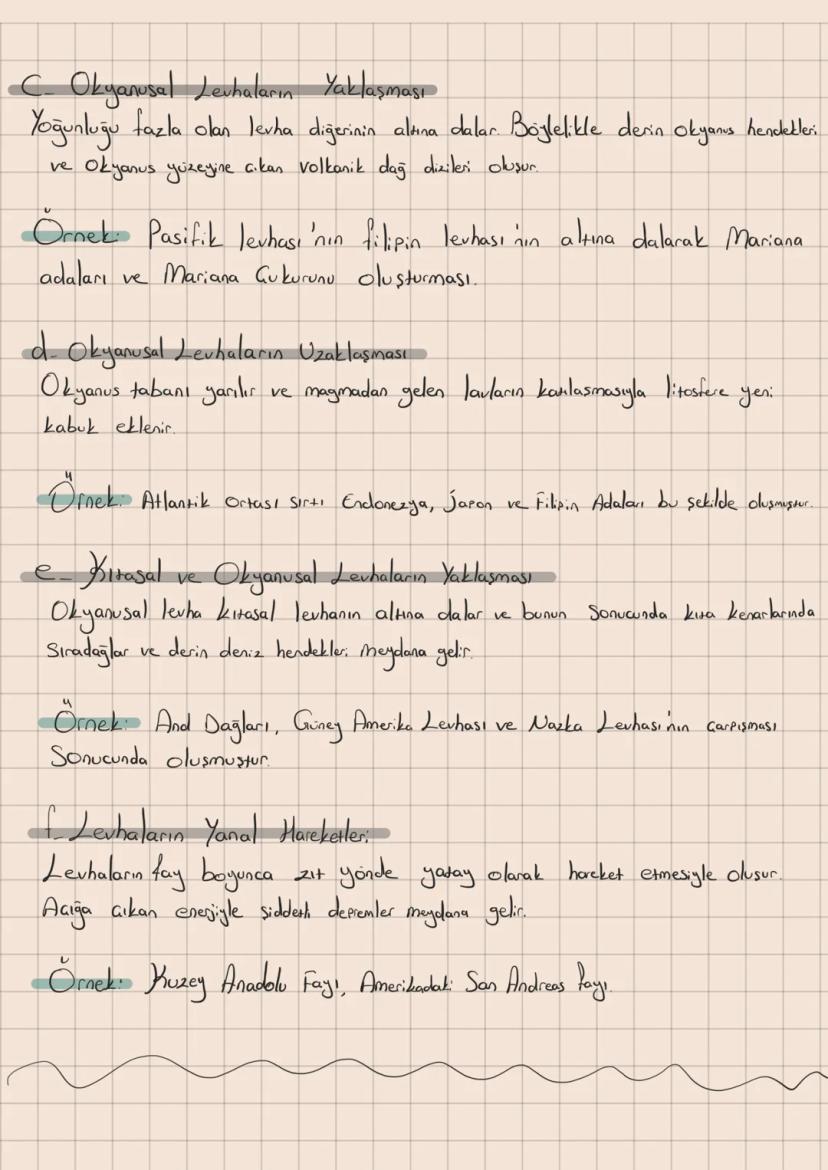 C- Okyanusal Levhaların Yaklaşması
Yoğunluğu fazla olan levha diğerinin altına dalar. Böylelikle derin okyanus hendekleri
ve Okyanus yüzeyine çıkan volkanik dağ dizileri oluşur.
Örnek: Pasifik levhası'nın filipin levhası'nın altına dalarak Mariana
adaları ve Mariana Çukurunu oluşturması.
d- Okyanusal Levhaların Uzaklaşması
Okyanus tabanı yarılır ve magmadan gelen lavların katılaşmasıyla litosfere yeni
kabuk eklenir.
Örnek: Atlantik Ortası Sırtı Endonezya, Japon ve Filipin Adaları bu şekilde oluşmuştur.
e- Kıtasal ve Okyanusal Levhaların Yaklaşması
Okyanusal levha kıtasal levhanın altına dalar ve bunun Sonucunda kıta kenarlarında
Sıradağlar ve derin deniz hendekleri meydana gelir.
Örnek: And Dağları, Güney Amerika Levhası ve Nazka Levhası'nın çarpışması
Sonucunda oluşmuştur.
f- Levhaların Yanal Hareketleri
Levhaların fay boyunca zıt yönde yatay olarak hareket etmesiyle oluşur.
Açığa çıkan enerjiyle şiddetli depremler meydana gelir.
Örnek: Kuzey Anadolu Fayı, Amerikadaki San Andreas Fayı.